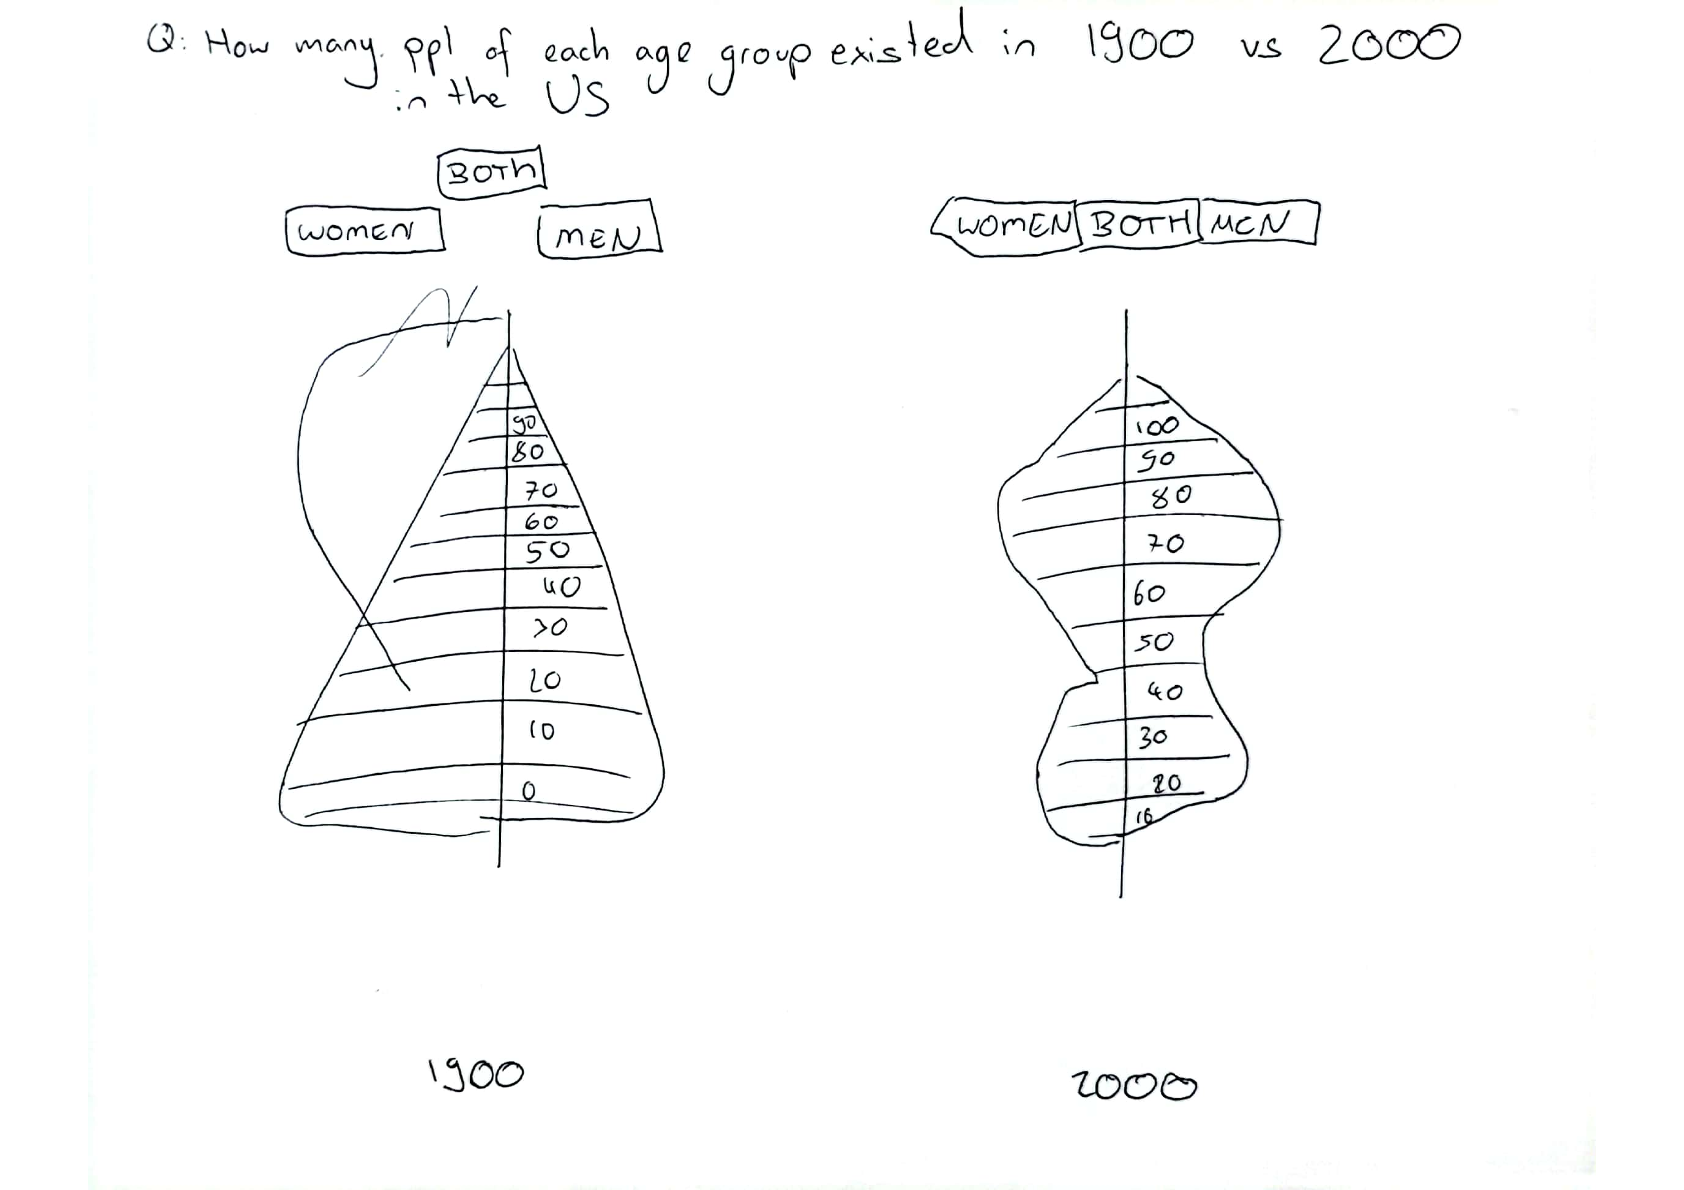 Q: How many ppl of each age group existed in 1900 vs 2000
in the US
BOTH
WOMEN
MEN
90
80
70
60
50
40
30
20
10
0
1900
WOMEN BOTH MEN
100
90
80
70
60
50
40
30
20
10
2000